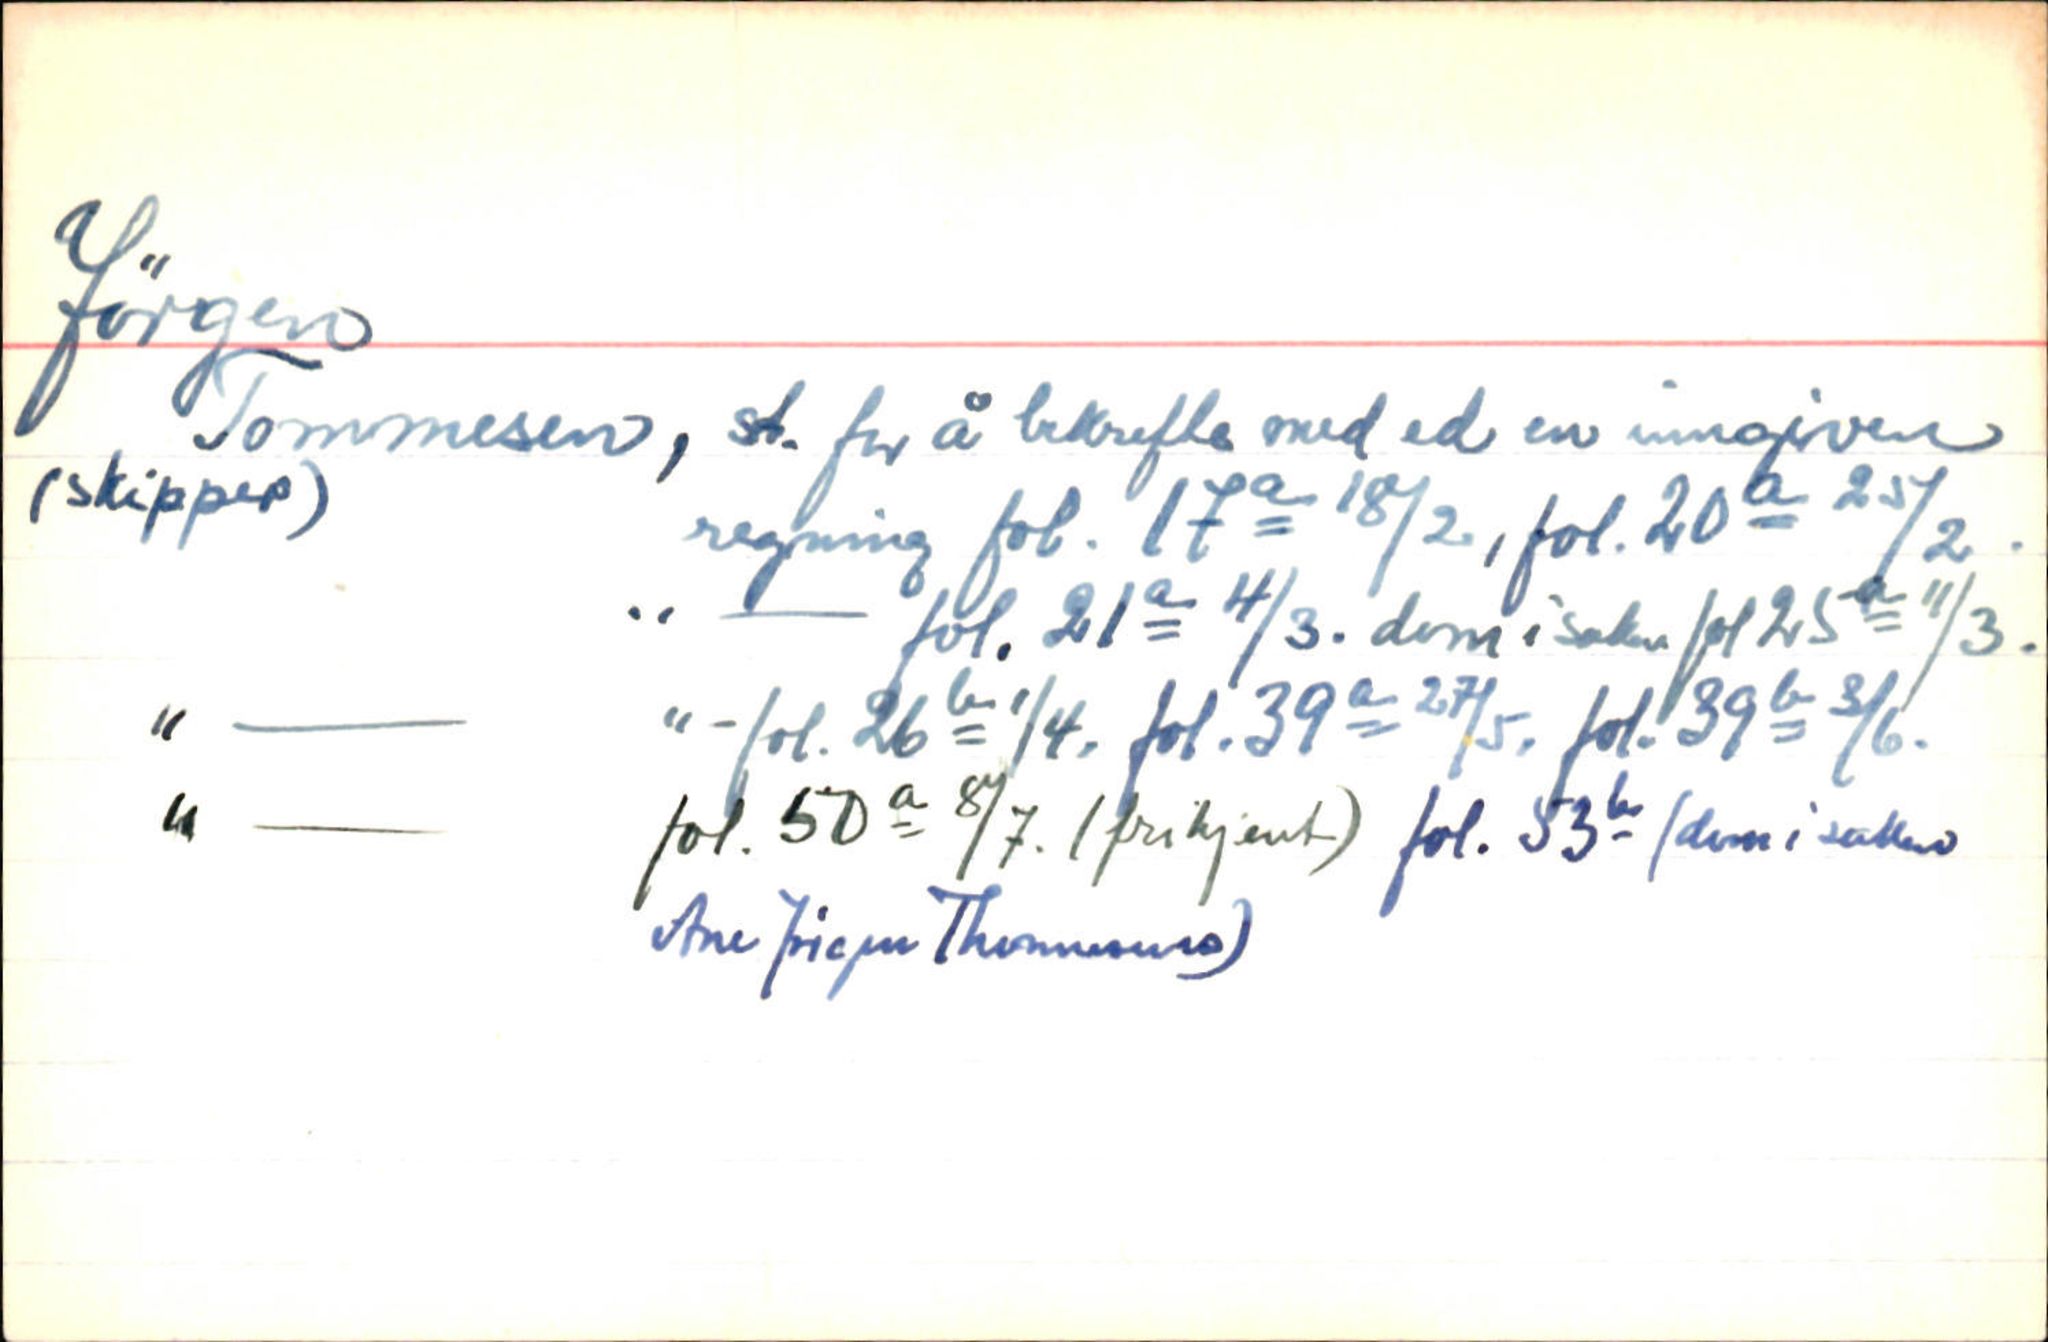 Jörgen
Tommesen, st. for å bekrefte med ed en inngiven
(skipper)
regning fol. 17ª 18/2, fol. 20ª 25/2.
" — fol. 21ª 4/3. dom i saken fol 25ª 11/3.
" — " - fol. 26ᵇ 1/4. fol. 39ª 27/5. fol. 39ᵇ 3/6.
" — fol. 50ª 8/7. (frikjent) fol. 53ᵇ (dom i saken
Ane Thommesens)